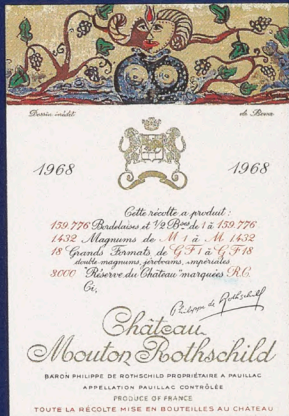 Dessin inédit
1968
1968
Cette récolte a produit :
139.776 Bordelaises et 1/2 Bses de 1 à 139.776
1432 Magnums de M 1 à M 1432
18 Grands Formats de G F 1 à G F 18
double magnums, jéroboams, impériales
3000 "Réserve du Château" marquées R.C.
Ci,
Philippe de Rothschild
Château
Mouton Rothschild
BARON PHILIPPE DE ROTHSCHILD PROPRIÉTAIRE A PAUILLAC
APPELLATION PAUILLAC CONTRÔLÉE
PRODUCE OF FRANCE
TOUTE LA RÉCOLTE MISE EN BOUTEILLES AU CHÂTEAU